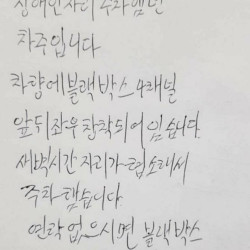 장애인자리 주차했던
차주입니다
차량에블랙박스 4채널
앞뒤좌우 장착되어 있습니다.
새벽시간 자리가 협소해서
주차 했습니다
연락 없으시면 블랙박스